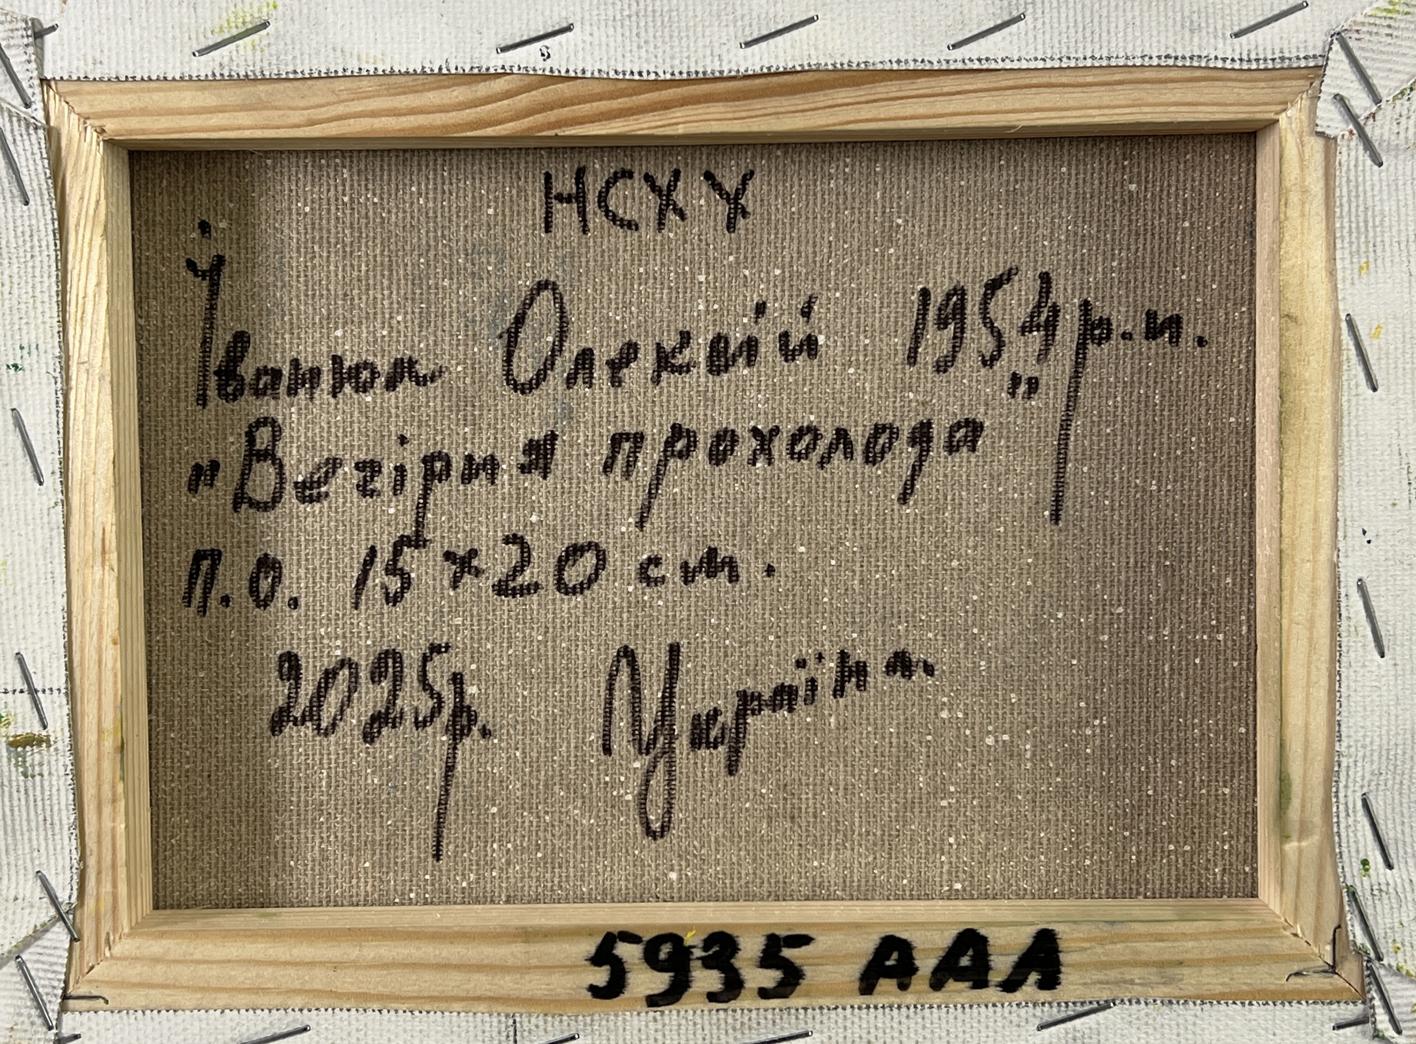 НСХУ
Іванюк Олексій 1954 р.н.
"Вечірня прохолода"
п.о. 15×20 см.
2025р. Україна.
5935 ААЛ